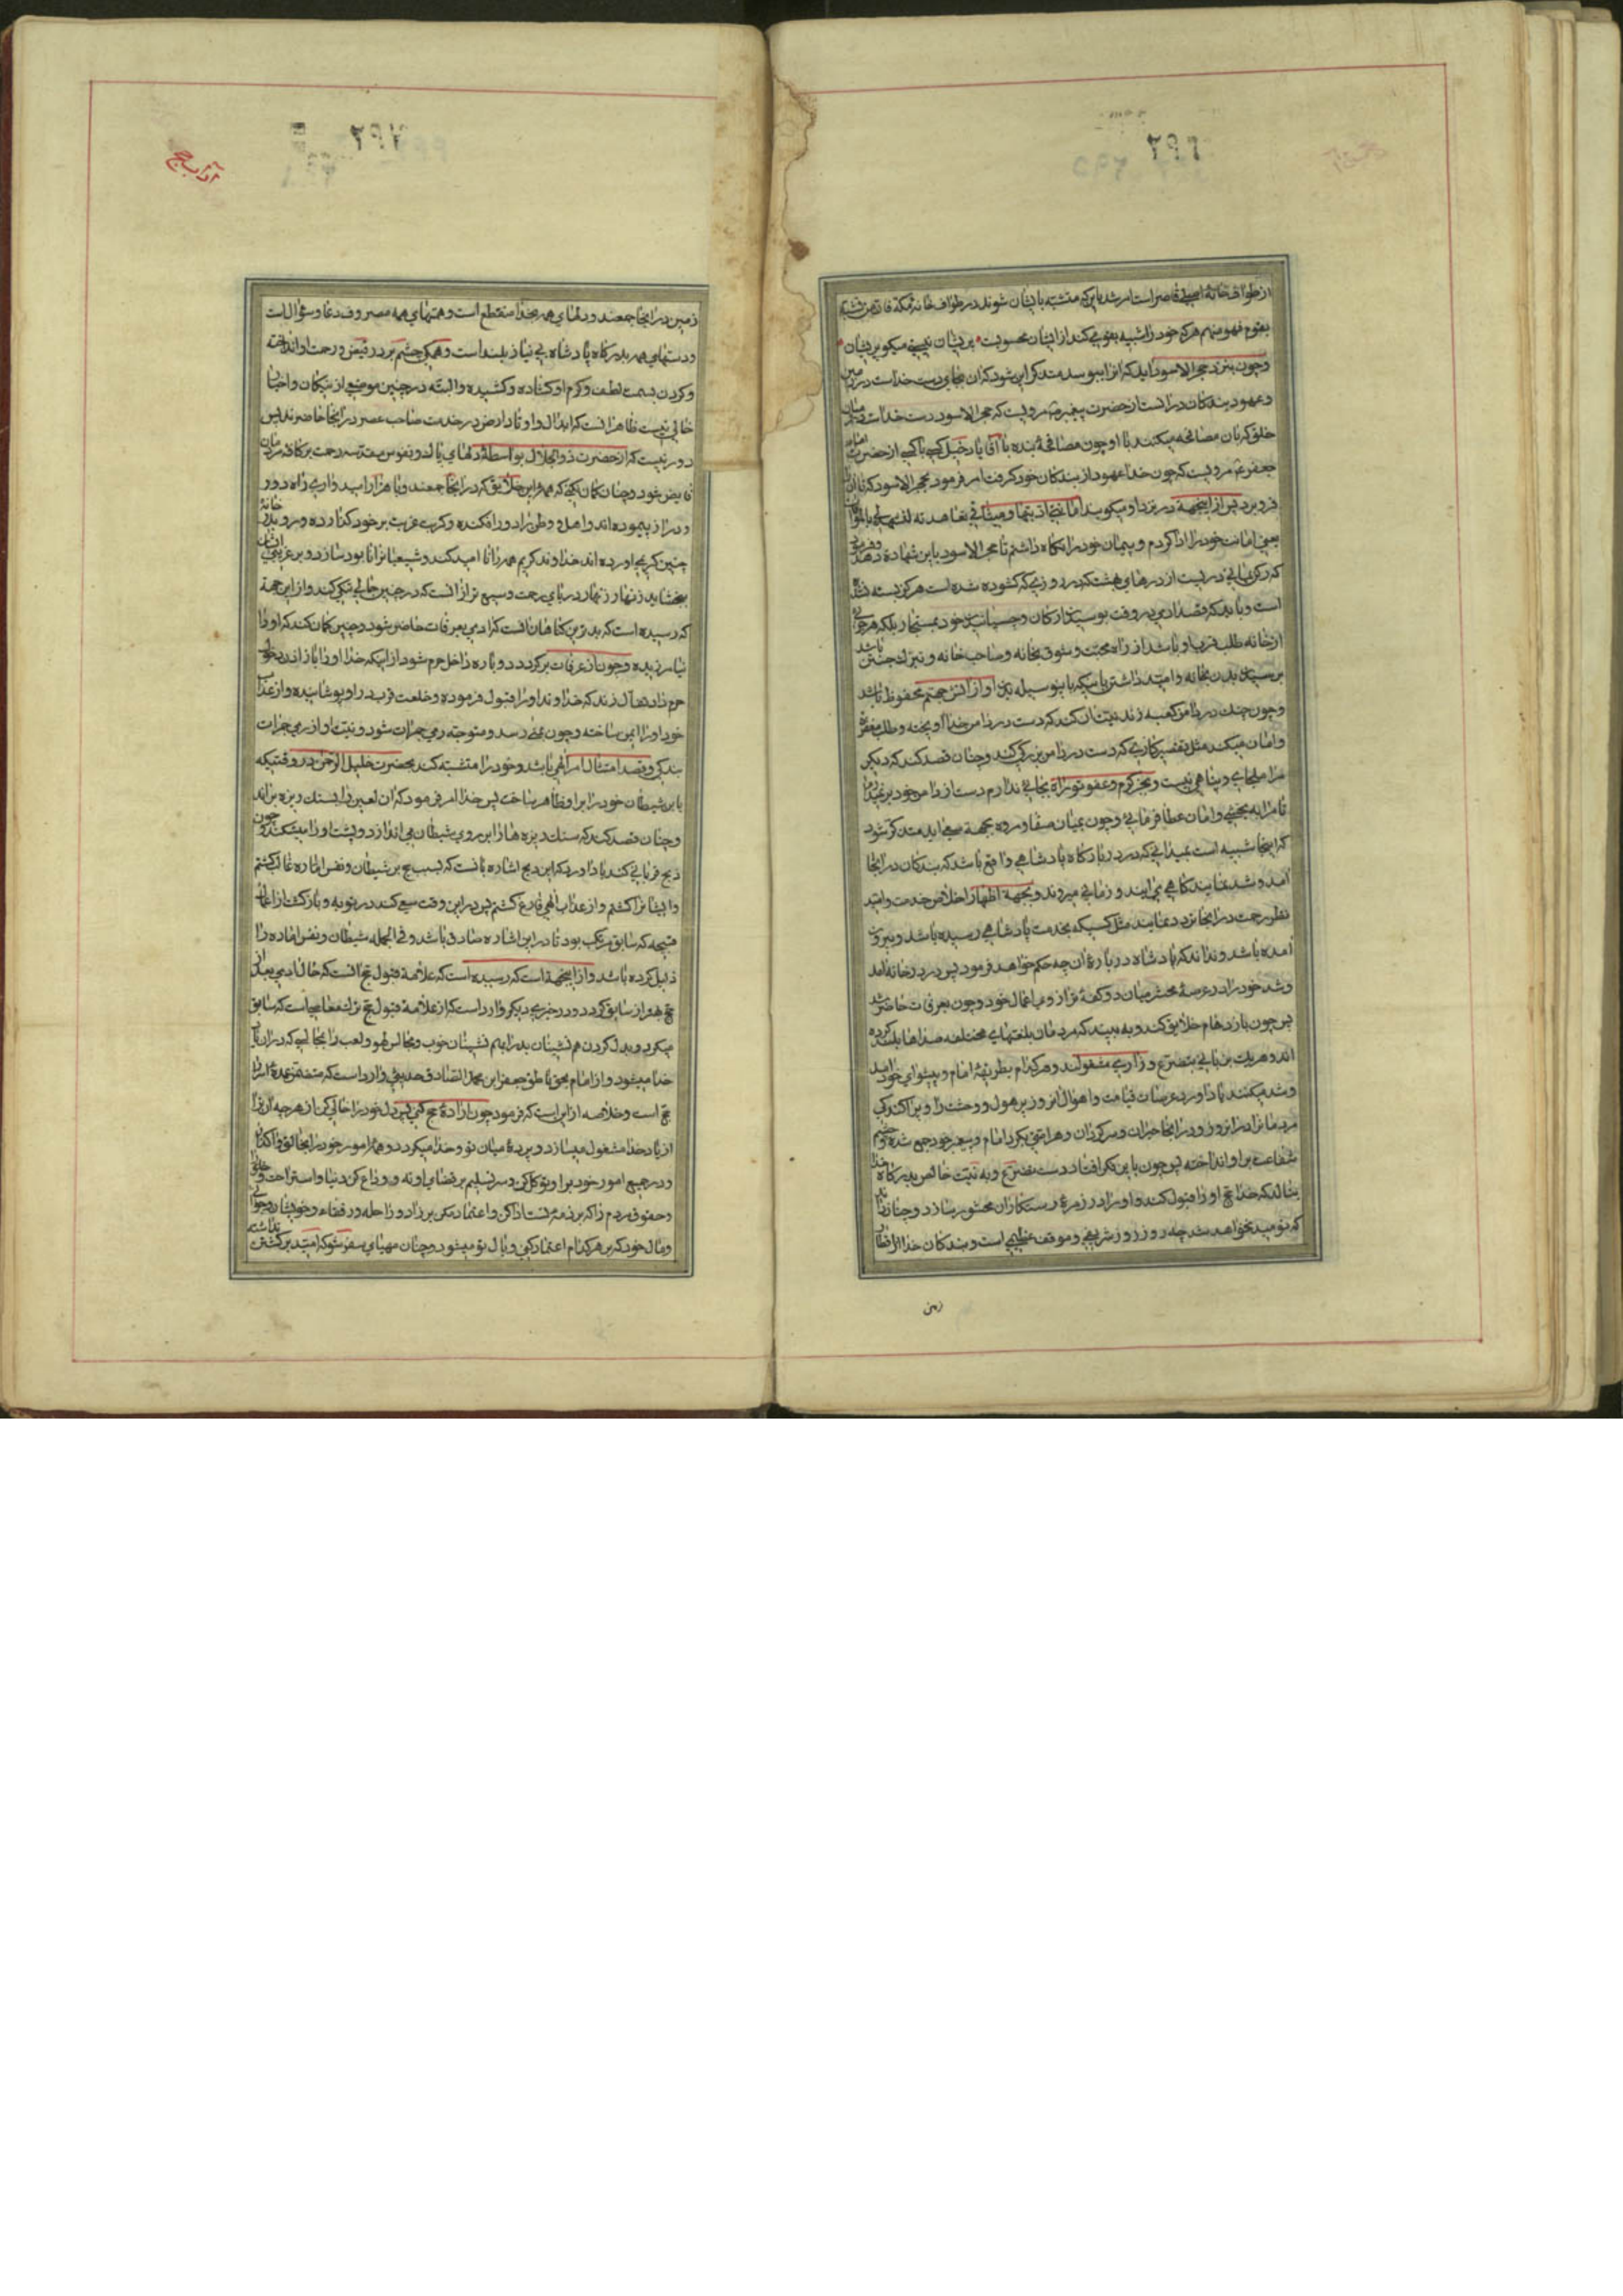 ۲۹۶
از طواف خانه اصلی قاصر است امر شد باینکه متشبه بایشان شوند در طواف خانه مکه فان من تشبه
بقوم فهو منهم هرکه خود را شبیه بقومی کند از ایشان محسوبست
وچون بنزد حجر الاسود آید که انرا ببوسد متذکر این شود که ان بجای دست خداست در زمین
وعهود بندگان در آنست از حضرت پیغمبر مرویست که حجر الاسود دست خداست در میان
خلق که بان مصافحه میکنند با او چون مصافحه بنده با آقا یا دخیل کسی با کسی از حضرت امام
جعفر ع مرویست که چون خدا عهود از بندگان خود گرفت امر فرمود بحجر الاسود که انرا
فرو برد پس از اینجهة در نزد او میگویند امانتی ادیتها ومیثاقی تعاهدته لتشهد لی بالموافاة
یعنی امانت خود را ادا کردم و پیمان خود را نگاه داشتم تا حجر الاسود باین شهادة دهد
که رکن یمانی دریست از درهای بهشت که در روزی که گشوده شده است هرگز بسته نشده
است و باید که قصد آدمی در وقت بوسیدن ارکان و چسپانیدن خود بمستجار بلکه هر جزئی
از خانه طلب قرب او باشد از راه محبت وشوق بخانه وصاحب خانه و تبرک جستن
برسیدن بدن بخانه وامید داشتن باینکه باینوسیله بدن او از آتش جهنم محفوظ باشد
وچون چنگ در دامن کعبه زند نیتش ان کند که دست در دامن خدا آویخته وطلب مغفرة
وامان میکند مثل تقصیرکاری که دست در دامن بزرگی کند وچنان قصد کند که دیگر
مرا ملجای وپناهی نیست وبجز کرم وعفو تو راه بجائی ندارم دست از دامن خود برنمیدارم
تا مرا به بخشی وامان عطا فرمائی وچون بمیان صفا ومروه بجهة سعی آید متذکر شود
که اینجا شبیه است بمیدانی که در درِ بارگاه پادشاهی واقع باشد که بندگان در آنجا
آمد وشد نمایند گاهی می آیند و زمانی میروند وبجهة اظهار اخلاص خدمت وامید
نظر رحمت در آنجا تردد نمایند مثل کسیکه بخدمت پادشاهی رسیده باشد وبیرون
آمده باشد ونداند که پادشاه در باره ان چه حکم خواهد فرمود پس در درِ خانه آمد
وشد خود را در عرصه محشر میان دو کفه ترازوی اعمال خود وچون بعرفات حاضر شد
پس چون بازدحام خلایق کند وبه بیند که مردمان بلغتهای مختلفه صداها بلند کرده
اند وهریک بزبانی بتضرع وزاری مشغولند وهرکدام بطریقه امام وپیشوای خود آمد
وشد میکنند یاد آورد عرصات قیامت واهوال انروز پر هول ووحشت را وپراکندگی
مردمانرا در انروز ودر آنجا حیران وسرگردان وهر امتی بگرد امام وپیغمبر خود جمع شده وچشم
شفاعت بر او انداخته پس چون باین فکر افتاد دست تضرع وبه نیت خالص بدرگاه خدا
بنالد که خدا حج او را قبول کند واو را در زمره رستگاران محشور سازد وچنان داند
که نومید نخواهد شد چه روز روز شریفی وموقف عظیمی است وبندگان خدا از اقطار
زمین
آداب حج
۲۹۷
زمین در آنجا جمعند ودلهای همه بخدا منقطع است وهمتهای همه مصروف دعا وسؤال است
ودستهای همه بدرگاه پادشاه بی نیاز بلند است وهمگی چشم بر در فیض ورحمت او انداخته
وگردن بسمت لطف وکرم او گشاده وکشیده والبته در چنین موضعی از نیکان واخیار
خالی نیست ظاهر انست که ابدال واوتاد ارض در خدمت صاحب عصر در آنجا حاضرند پس
دور نیست که از حضرت ذو الجلال بواسطه دلهای پاک ونفوس مقدسه رحمت بر کافه مردمان
فایض شود وچنان گمان نکنی که همه این خلایق که در آنجا جمعند وبا هزار امیدواری راه دور
ودراز پیموده اند واهل وطن را دور افکنده وکربت غربت بر خود گذارده ورو بدر خانه
چنین کریمی آورده اند خداوند کریم همه را نا امید کند وسعی انرا نابود سازد وبر غریبی ایشان
نبخشاید زنهار زنهار دریای رحمت وسیع تر از انست که در چنین حالی تنگی کند واز این جهة
که رسیده است که بدترین گناهان انست که آدمی بعرفات حاضر شود وچنین گمان کند که او را
نیامرزیده وچون از عرفات برگردد ودوباره داخل حرم شود از اینکه خدا او را باز اذن دخول
حرم داد تفال زند که خداوند او را قبول فرموده وخلعت قرب در او پوشانیده واز عذاب
خود او را ایمن ساخته وچون بمنی رسد ومتوجه رمی جمرات شود ونیت او از رمی جمرات
بندگی وقصد امتثال امر الهی باشد وخود را متشبه کند بحضرت خلیل الرحمن در وقتیکه
باین شیطان خود را بر او ظاهر ساخت پس خدا امر فرمود که ان لعین را بسنگ ریزه براند
وچنان قصد کند که سنگ ریزه ها را بر روی شیطان می اندازد وپشت او را میشکند وچون
ذبح قربانی کند یاد آورد که این ذبح اشاره بانست که بسبب حج بر شیطان ونفس اماره غالب گشتم
وایشانرا کشتم واز عذاب الهی فارغ گشتم پس در این وقت سعی کند در توبه وبازگشت از اعمال
قبیحه که سابق مرتکب بود تا در این اشاره صادق باشد وفی الجمله شیطان ونفس اماره را
ذلیل کرده باشد واز اینجهة است که رسیده است که علامة قبول حج انست که حال آدمی بعد از
حج بهتر از سابق گردد ودر خبری دیگر وارد است که از علامة قبول حج ترک معاصی است که سابق
میکرد وبدل کردن هم نشینان بد را بهم نشینان خوب ومجالس لهو ولعب را بمجالسی که در ان یاد
خدا میشود واز امام بحق ناطق جعفر ابن محمد الصادق حدیثی وارد است که متضمن عمده اسرار
حج است وخلاصه ان این است که فرمود چون اراده حج کنی پس دل خود را خالی کن از هر چه ان را
از یاد خدا مشغول میسازد وپرده میان تو وخدا میگردد وهمه امور خود را بخالق واگذار
ودر جمیع امور خود بر او توکل کن وسر تسلیم بر قضای او نه ووداع کن دنیا واستراحت وخلق
وحقوق مردم را که بر ذمه تست ادا کن واعتماد مکن بر زاد وراحله ورفقاء وخویشان وجوانی
ومال خود که بر هر کدام اعتماد کنی وبال تو میشود وچنان مهیای سفر شو که امید برگشتن نداشته